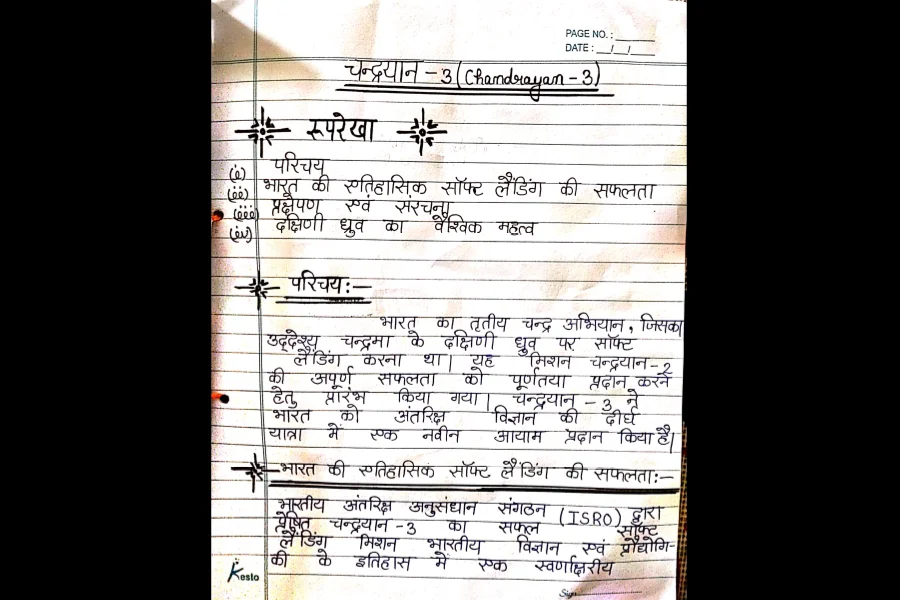 PAGE NO. :
DATE : __/__/__
चन्द्रयान - 3 (Chandrayan - 3)
रूपरेखा
(i) परिचय
(ii) भारत की एतिहासिक सॉफ्ट लैंडिंग की सफलता
(iii) प्रक्षेपण एवं संरचना
(iv) दक्षिणी ध्रुव का वैश्विक महत्व
परिचय:-
भारत का तृतीय चन्द्र अभियान, जिसका
उद्देश्य चन्द्रमा के दक्षिणी ध्रुव पर सॉफ्ट
लैंडिंग करना था। यह मिशन चन्द्रयान-2
की अपूर्ण सफलता को पूर्णतया प्रदान करने
हेतु प्रारंभ किया गया। चन्द्रयान - 3 ने
भारत को अंतरिक्ष विज्ञान की दीर्घ
यात्रा में एक नवीन आयाम प्रदान किया है।
भारत की एतिहासिक सॉफ्ट लैंडिंग की सफलता:-
भारतीय अंतरिक्ष अनुसंधान संगठन (ISRO) द्वारा
प्रेषित चन्द्रयान-3 का सफल सॉफ्ट
लैंडिंग मिशन भारतीय विज्ञान एवं प्रौद्योगि-
की के इतिहास में एक स्वर्णाक्षरीय
Kesto
Sign